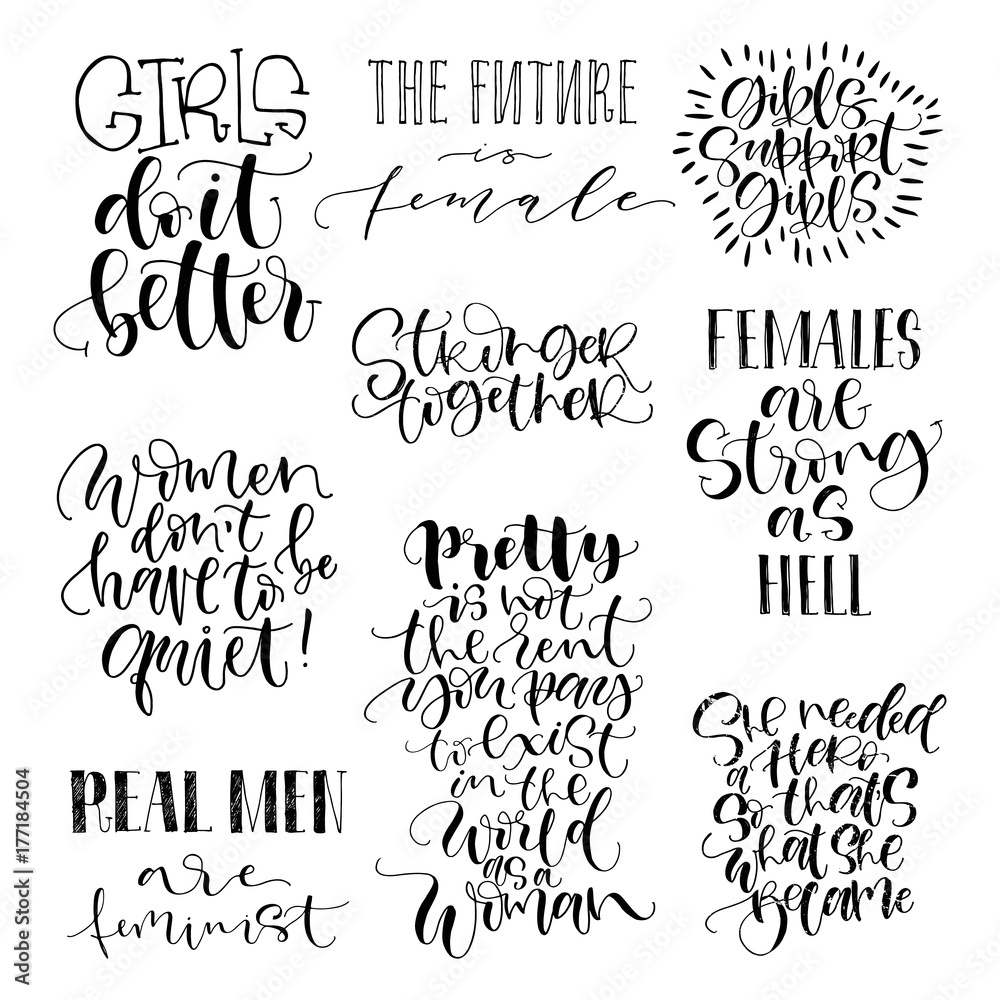 GIRLS
do it
better
THE FUTURE
is
female
Girls
Support
Girls
Stronger
together
FEMALES
are
Strong
as
HELL
Women
don't
have to be
quiet!
Pretty
is not
the rent
you pay
to exist
in the
World
as a
Woman
REAL MEN
are
feminist
She needed
a Hero
So that's
What she
Became
Adobe Stock | #177184504
Adobe Stock